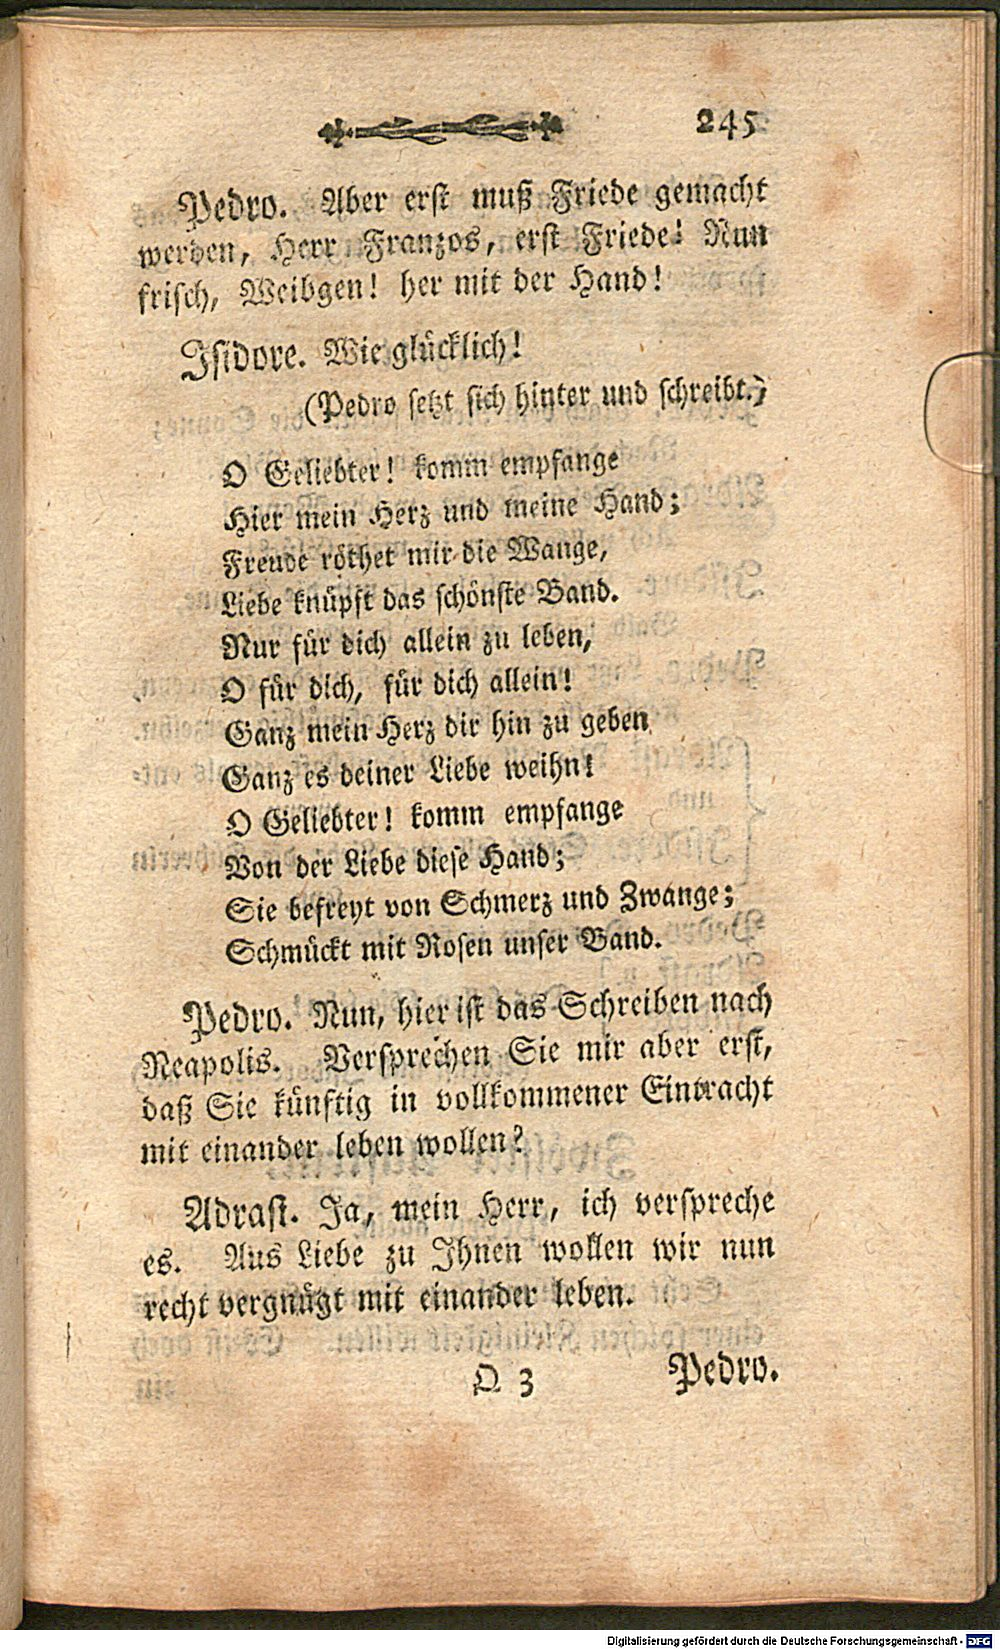 245
Pedro. Aber erst muß Friede gemacht
werden, Herr Franzos, erst Friede! Nun
frisch, Weibgen! her mit der Hand!
Isidore. Wie glücklich!
(Pedro setzt sich hinter und schreibt.)
O Geliebter! komm empfange
Hier mein Herz und meine Hand;
Freude röthet mir die Wange,
Liebe knüpft das schönste Band.
Nur für dich allein zu leben,
O für dich, für dich allein!
Ganz mein Herz dir hin zu geben
Ganz es deiner Liebe weihn!
O Geliebter! komm empfange
Von der Liebe diese Hand;
Sie befreyt von Schmerz und Zwange;
Schmückt mit Rosen unser Band.
Pedro. Nun, hier ist das Schreiben nach
Neapolis. Versprechen Sie mir aber erst,
daß Sie künftig in vollkommener Eintracht
mit einander leben wollen?
Adrast. Ja, mein Herr, ich verspreche
es. Aus Liebe zu Ihnen wollen wir nun
recht vergnügt mit einander leben.
Q 3 Pedro.
Digitalisierung gefördert durch die Deutsche Forschungsgemeinschaft - DFG